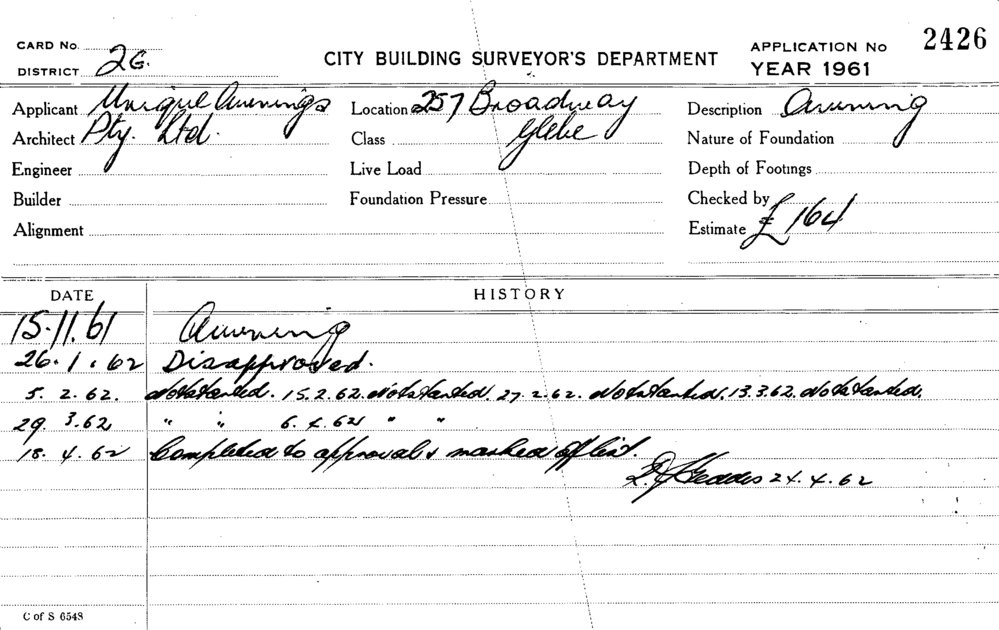 CARD No.
DISTRICT 26.
CITY BUILDING SURVEYOR'S DEPARTMENT
APPLICATION No 2426
YEAR 1961
Applicant Unique Awnings
Architect Pty. Ltd.
Engineer
Builder
Alignment
Location 257 Broadway
Class Glebe
Live Load
Foundation Pressure
Description Awning
Nature of Foundation
Depth of Footings
Checked by
Estimate £ 164
DATE HISTORY
15.11.61 Awning
26.1.62 Disapproved.
5.2.62. Not started. 15.2.62. Not started. 27.2.62. Not started. 13.3.62. Not started.
29.3.62 " " 6.4.62 " "
18.4.62 Completed to approval & marked off list.
24.4.62
C of S 6548